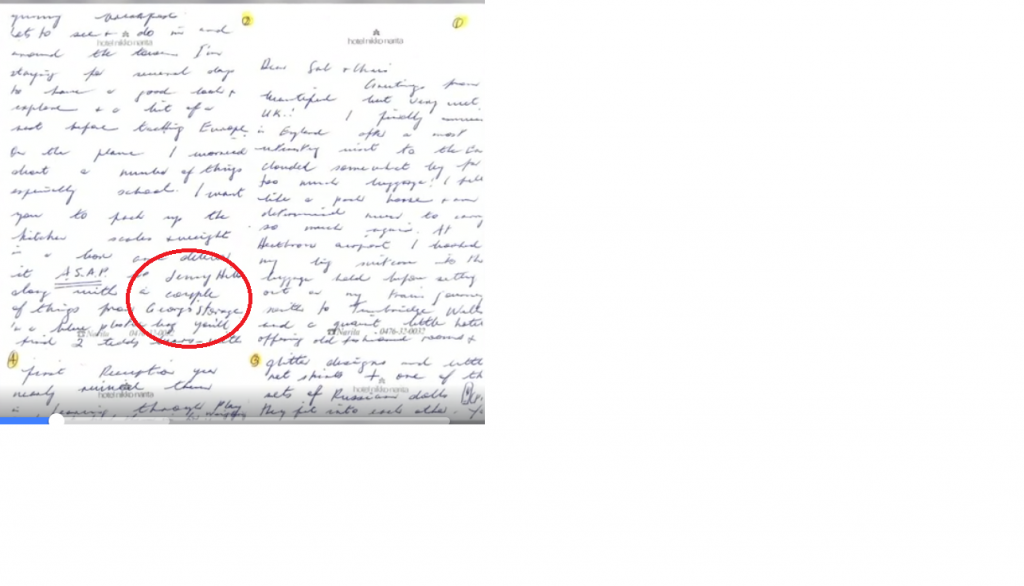 ①
hotel nikko narita
Dear Sal + Chris
Greetings from
beautiful but very wet
UK! I finally
in England after a most
visit to the
clouded somewhat by far
too much luggage! I felt
like a pack horse + am
determined never to carry
so much again. At
Heathrow airport I
my big suitcase to the
luggage hold before setting
out on my train journey
south to Tunbridge Wells
and a quaint little hotel
Narita 0476-32-0032
offering old fashioned rooms +
②
yummy breakfast
lots to see + do in and
hotel nikko narita
around the town. I'm
staying for several days
to have a good look +
explore + a bit of a
rest before tackling Europe.
On the plane I worried
about a number of things
especially school. I want
you to pack up the
kitchen scales + weights
in a box and deliver
it A.S.A.P. to Jenny
along with a couple
of things from George's storage
in a blue plastic bag you'll
Narita
find 2 teddy bears with
③
glitter designs and
net skirts + one of the
hotel nikko narita
sets of Russian dolls
they fit into each other.
④
first Reception year
nearly ruined them
hotel nikko narita
in through play